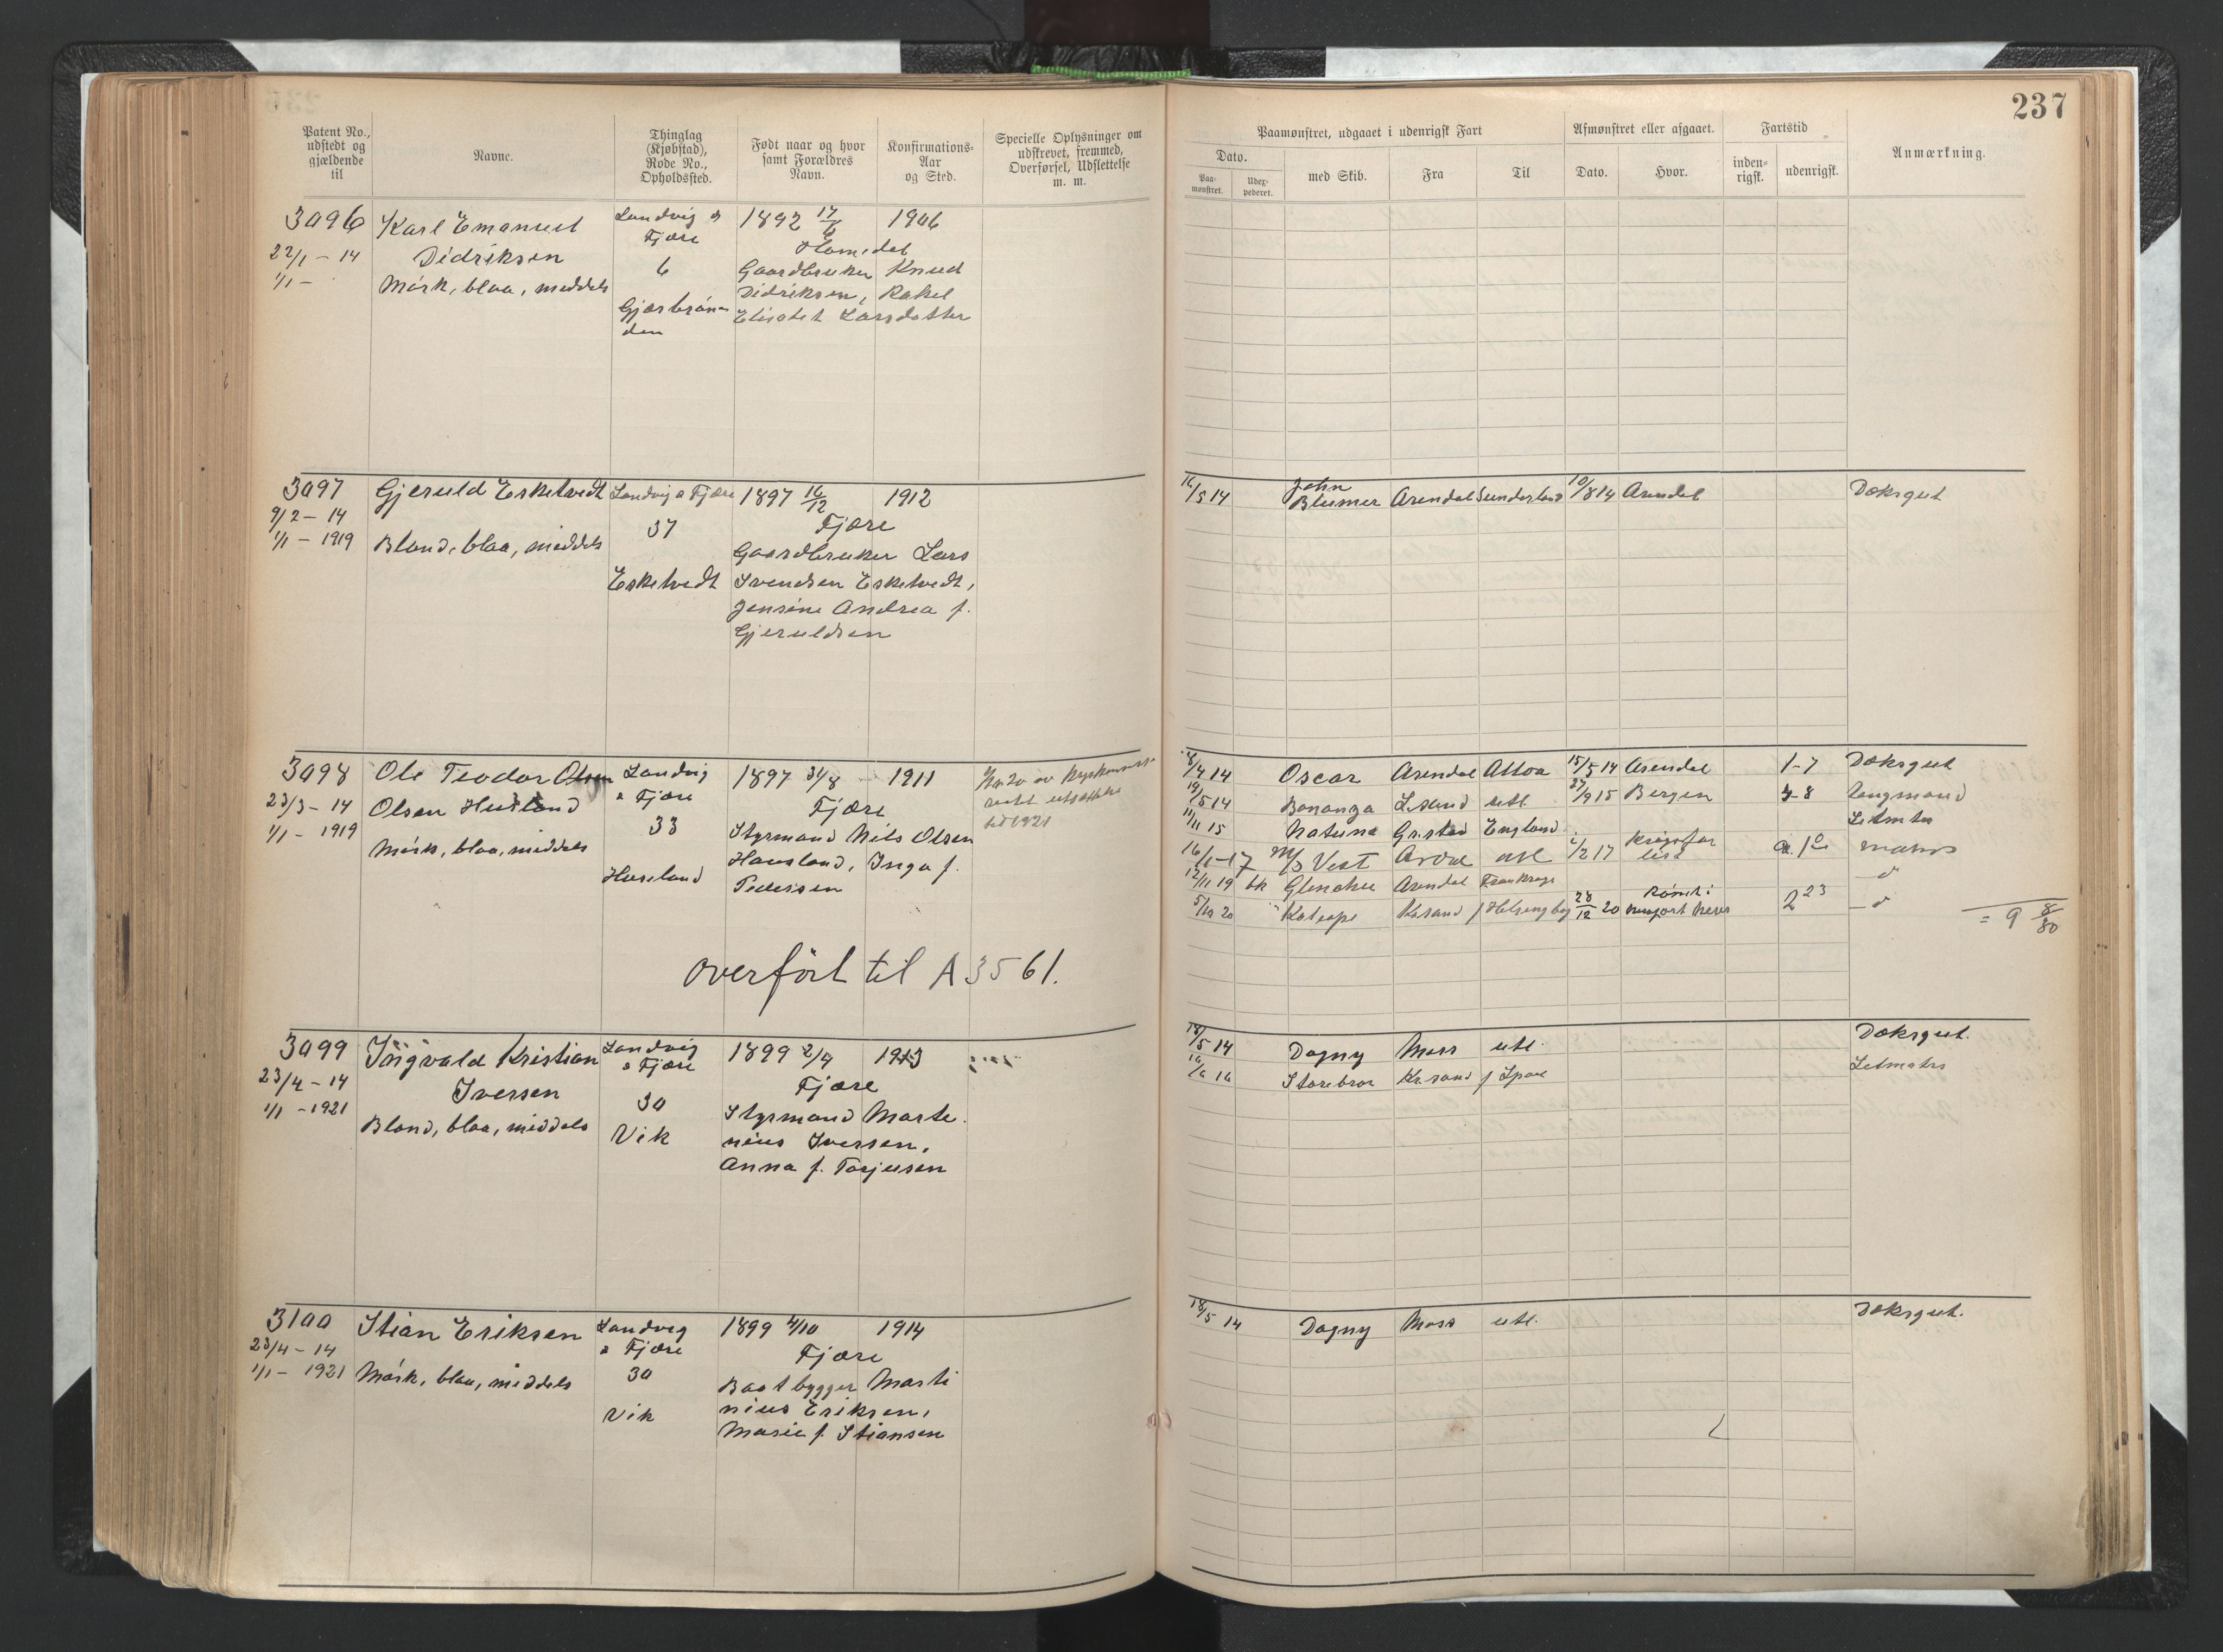 237
Patent No.,
udstedt og
gjældende
til
Navne.
Thinglag
(Kjøbstad),
Rode No.,
Opholdssted.
Født naar og hvor
samt Forældres
Navn.
Konfirmations-
Aar
og Sted.
Specielle Oplysninger om
udskrevet, fremmed,
Overførsel, Udslettelse
m. m.
Paamønstret, udgaaet i udenrigsk Fart
Dato.
Paa-
mønstret.
Udex-
pederet.
med Skib.
Fra
Til
Afmønstret eller afgaaet.
Dato.
Hvor.
Fartstid
inden-
rigsk.
udenrigsk.
Anmærkning.
3096 Karl Emanuel Landvig & 1892 17/6 1906
22/1 - 14 Didriksen Fjære Homedal
1/1 - 6 Gaardbruker Knud
Mørk, blaa, middels Didriksen, Rakel
Elisabet Larsdatter
3097 Gjeruld Eskelvedt Landvig & Fjære 1897 16/12 1912
9/2 - 14 37 Fjære
1/1 - 1919 Blond, blaa, middels Gaardbruker Lars
Eskelvedt Svendsen Eskelvedt,
Jensine Andrea f.
Gjeruldsen
16/5 14 John Blumer Arendal Sunderland 10/8 14 Arendal Doksgut
3098 Ole Teodor Olsen Landvig 1897 31/8 1911
23/3 - 14 Olsen Husland & Fjære Fjære
1/1 - 1919 33 Styrmand Nils Olsen
Mørk, blaa, middels Hausland, Inga f.
Huseland Pedersen
overført til A 3561.
8/4 14 Oscar Arendal Alloa 15/5 14 Arendal 1-7 Doksgut
19/5 14 Bonanza utl. 27/9 15 Bergen 7-8 Jungmand
11/11 15 Natuna Grstad England Letmtr
16/1-17 M/S Vest Ardal utl 2/2 17 matros
12/11 19 bk Glenalvu Arendal Frankrige
5/10 20 Kalliope Krsand f Helsingborg 28/12 20 2 23
= 9 8/30
3099 Ingvald Kristian Landvig 1899 2/4 1913
23/4 - 14 Iversen & Fjære Fjære
1/1 - 1921 30 Styrmand Marte
Blond, blaa, middels Vik nius Iversen,
Anna f. Torjusen
18/5 14 Dagny Moss utl. Doksgut.
16/6 16 Storebror Krsand f Letmatrs
3100 Stian Eriksen Landvig 1899 4/10 1914
23/4 - 14 & Fjære Fjære
1/1 - 1921 Mørk, blaa, middels 30 Baatbygger Marti
Vik nius Eriksen,
Marie f. Stiansen
18/5 14 Dagny Moss utl. Doksgut.